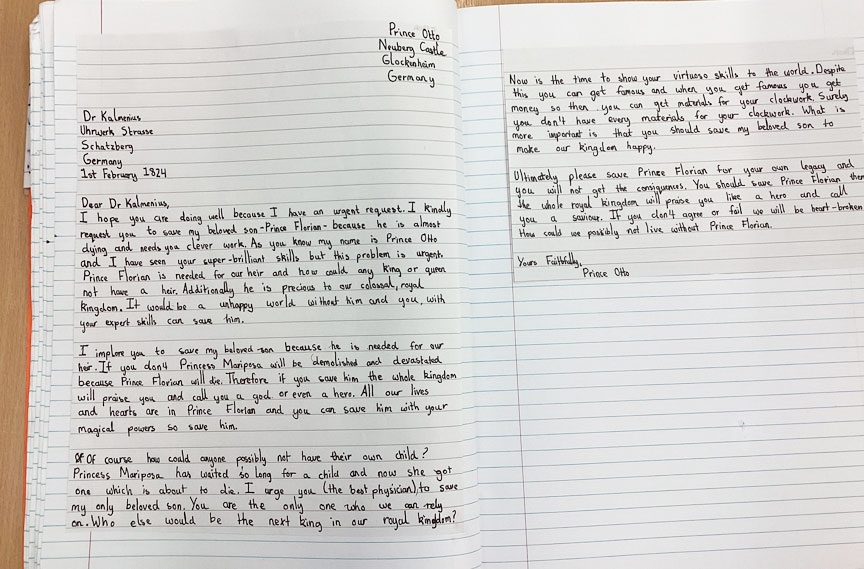 Prince Otto
Neuberg Castle
Glockenheim
Germany
Dr Kalmenius
Uhrwerk Strasse
Schatzberg
Germany
1st February 1824
Dear Dr Kalmenius,
I hope you are doing well because I have an urgent request. I kindly
request you to save my beloved son-Prince Florian-because he is almost
dying and needs you clever work. As you know my name is Prince Otto
and I have seen your super-brilliant skills but this problem is urgent.
Prince Florian is needed for our heir and how could any king or queen
not have a heir. Additionally he is precious to our colossal, royal
kingdom. It would be a unhappy world without him and you, with
your expert skills can save him.
I implore you to save my beloved son because he is needed for our
heir. If you don't Princess Mariposa will be demolished and devastated
because Prince Florian will die. Therefore if you save him the whole kingdom
will praise you and call you a god or even a hero. All our lives
and hearts are in Prince Florian and you can save him with your
magical powers so save him.
Of course how could anyone possibly not have their own child?
Princess Mariposa has waited so long for a child and now she got
one which is about to die. I urge you (the best physician), to save
my only beloved son. You are the only one who we can rely
on. Who else would be the next king in our royal kingdom?
Now is the time to show your virtuoso skills to the world. Despite
this you can get famous and when you get famous you get
money so then you can get materials for your clockwork. Surely
you don't have every materials for your clockwork. What is
more important is that you should save my beloved son to
make our kingdom happy.
Ultimately please save Prince Florian for your own legacy and
you will not get the consiquences. You should save Prince Florian then
the whole royal kingdom will praise you like a hero and call
you a saviour. If you don't agree or fail we will be heart-broken
How could we possibly not live without Prince Florian.
Yours Faithfully,
Prince Otto